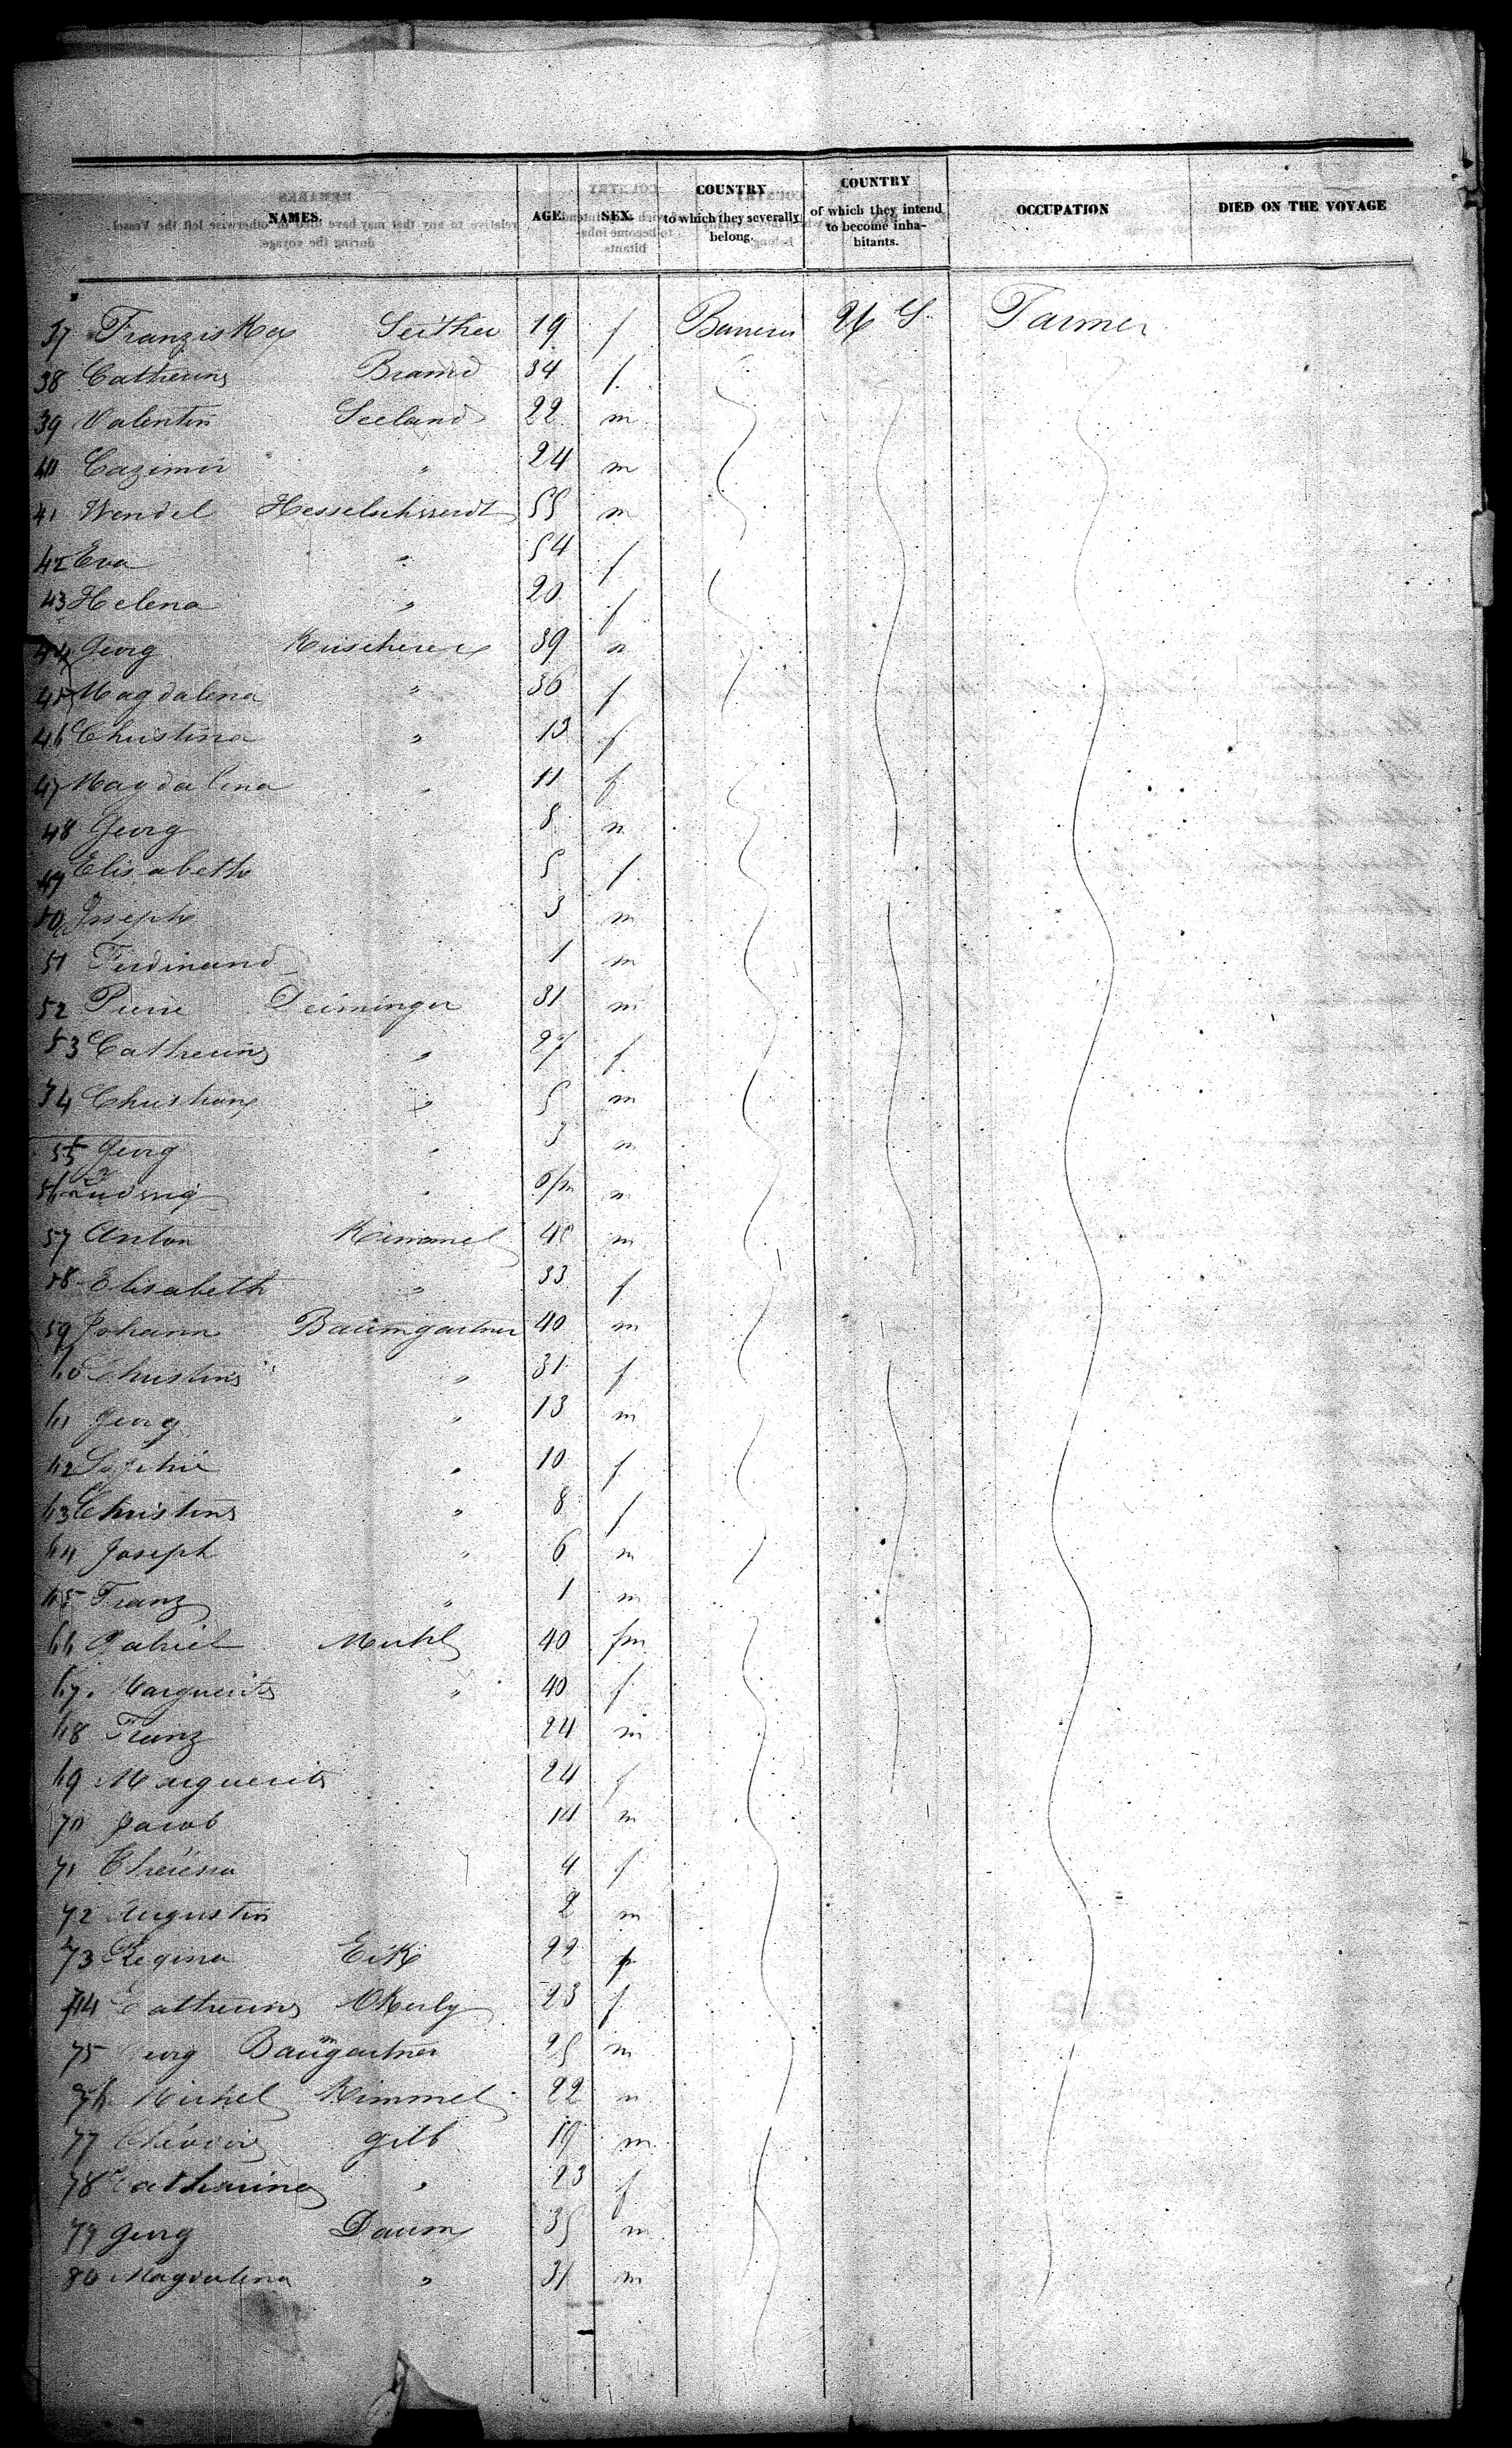 NAMES. AGE. SEX. COUNTRY to which they severally belong. COUNTRY of which they intend to become inhabitants. OCCUPATION DIED ON THE VOYAGE
37 Franziska Seither 19 f U S. Farmer
38 34 f
39 Valentin Seeland 22 m
40 Cazimir " 24 m
41 Wendel 55 m
42 Eva " 54 f
43 Helena " 20 f
44 Georg 39 m
45 Magdalena " 36 f
46 Christina " 13 f
47 Magdalena " 11 f
48 Georg 8 m
49 Elisabeth 5 f
50 Joseph 3 m
51 Ferdinand 1 m
52 Pierre Deiminger 31 m
53 Catherina " 27 f
54 Christian " 5 m
55 Georg " 3 m
56 Ludwig " m
57 Anton Kimmel m
58 Elisabeth " 33 f
59 Johann Baumgartner 40 m
60 Christina " 31 f
61 Georg " 13 m
62 Sophie " 10 f
63 Christina " 8 f
64 Joseph " 6 m
65 Franz " 1 m
66 Gabriel 40 m
67 Marguerita " 40 f
68 Franz 24 m
69 Marguerita 24 f
70 Jacob 14 m
71 Theresia 4 f
72 Augustin 2 m
73 Regina 22 f
74 Catherina 23 f
75 Georg Baumgartner 25 m
76 Michel Kimmel 22 m
77 Gilb 19 m
78 Catharina " 23 f
79 Georg Daum 35 m
80 Magdalena " 31 m